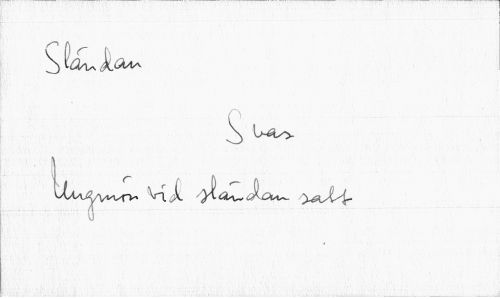 Sländan
Svas
Ungmön vid sländan satt